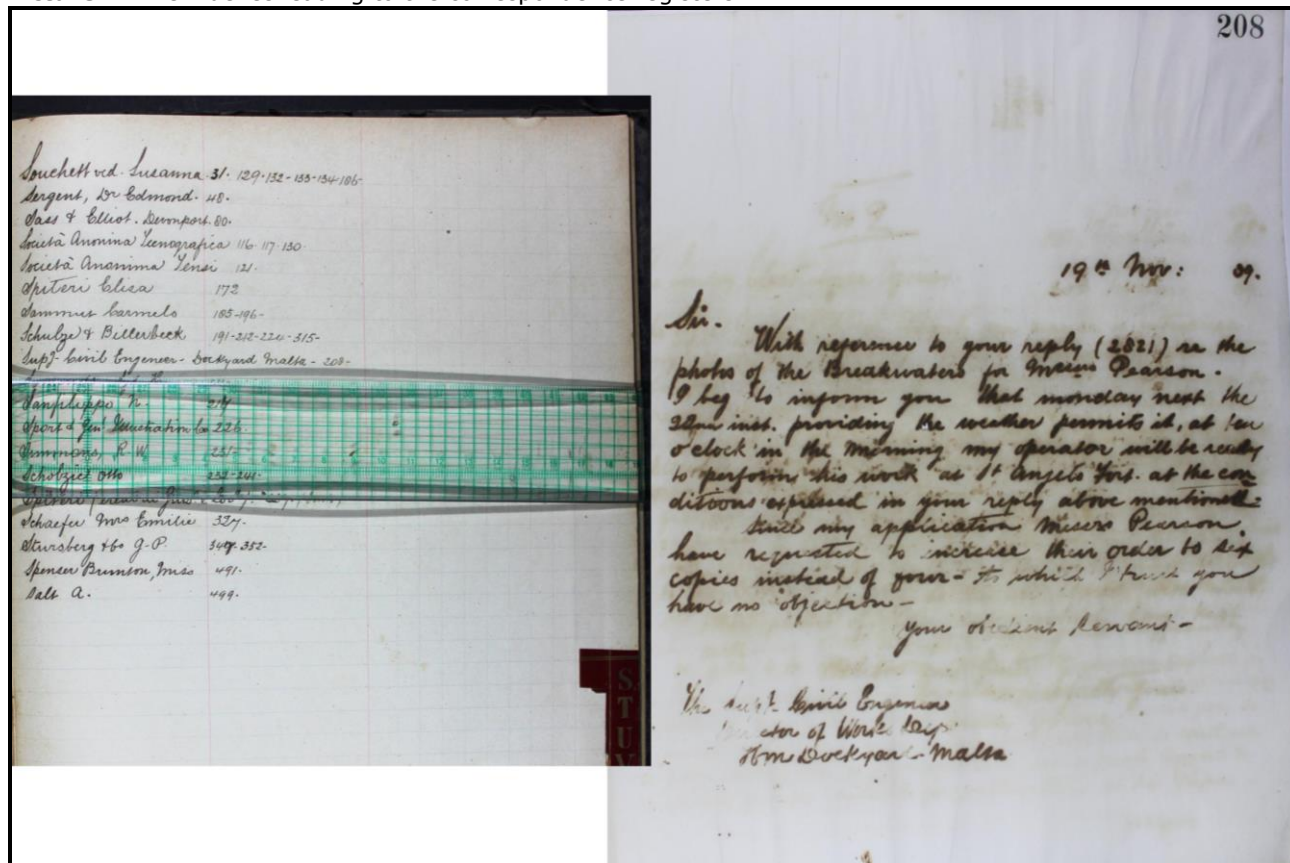 208
Souchett ved. Susanna 31. 129-132-133-134-186-
Sergent, Dr Edmond. 48.
Sass & Elliot. Devonport. 80.
Società Anonima 116. 117. 130.
Società Anonima Tensi 121.
Spiteri Elisa 172
Sammut Carmelo 185-196-
Schulze & Billerbeck 191-212-220-315-
Supt- Civil Engineer- Dockyard Malta - 208-
Sanfilippo N. 217
Sport & Gen Illustration Co 226
Simmons, R W 231
Schobzier Otto 232-241-
Spiteri
Schaefer Mrs Emilie 327.
Stursberg & Co G-P. 347-352-
Spenser Brunton, Miss 491.
Salt A. 499.
S
T
U
V
19th Nov: 09.
Sir.
With reference to your reply (2821) re the
photos of the Breakwaters for Messrs Pearson.
I beg to inform you that monday next the
22nd inst. providing the weather permits it, at ten
o'clock in the morning my operator will be ready
to perform this work at St Angelo Fort. at the con
ditions expressed in your reply above mentioned.
Since my application Messrs Pearson
have requested to increase their order to six
copies instead of four - to which I trust you
have no objection -
Your obedient Servant -
The Supt- Civil Engineer
of Works Dep
HM Dockyard- Malta